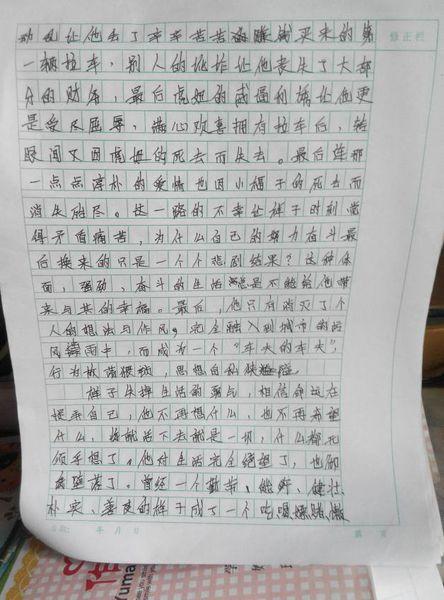 动乱让他丢了辛辛苦苦赚钱买来的第 修正栏
一辆拉车，别人的诈让他丧失了大部
分的财产，最后虎妞的威逼利诱让他更
是受尽屈辱，满心欢喜拥有拉车后，转
眼间又因虎妞的死去而失去。最后连那
一点点淳朴的爱情也因小福子的死去而
消失殆尽。这一路的不幸让祥子时刻觉
得矛盾痛苦，为什么自己的努力奋斗最
后换来的只是一个个悲剧结果？这种体
面，强劲，奋斗的生活总是不能给他带
来与其的幸福。最后，他只有消灭了个
人的想法与作风，完全融入到城市的
风雨中，而成为一个“车夫的车夫”，
行为堕落猥琐，思想自私
祥子失掉生活的勇气，相信命运在
捉弄自己，他不再想什么，也不再希望
什么，将就活下去就是一切，什么都无
须乎想了。他对生活完全绝望了，也彻
底堕落了。曾经一个勤劳、健壮、
朴实、善良的祥子成了一个吃喝嫖赌、懒
年 月 日 第 页